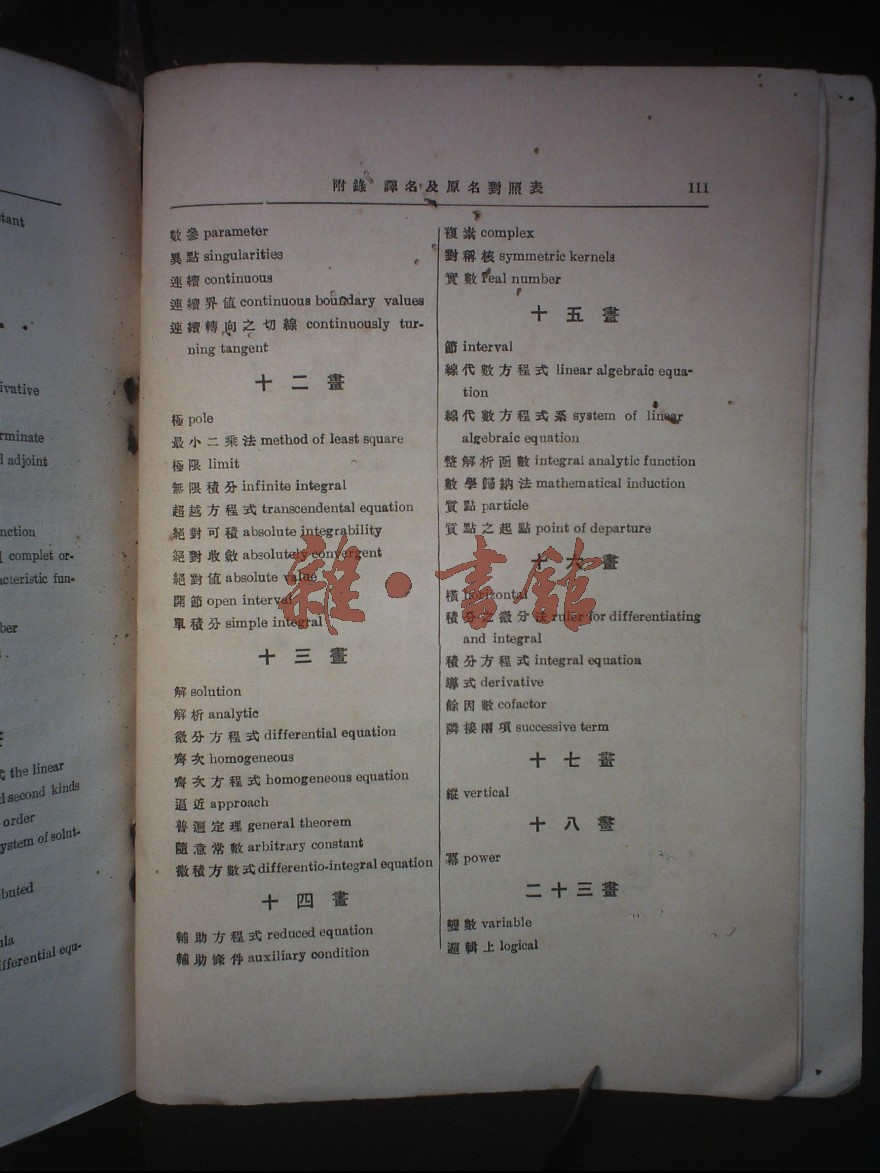 tant
ivative
rminate
l adjoint
nction
complet or-
acteristic fun-
ber
the linear
d second kinds
order
ystem of solut-
buted
ula
ifferential equ-
附錄 譯名及原名對照表 111
數參 parameter
異點 singularities
連續 continuous
連續界值 continuous boundary values
連續轉向之切線 continuously tur-
ning tangent
十二畫
極 pole
最小二乘法 method of least square
極限 limit
無限積分 infinite integral
超越方程式 transcendental equation
絕對可積 absolute integrability
絕對收斂 absolutely convergent
絕對值 absolute value
開節 open interval
單積分 simple integral
十三畫
解 solution
解析 analytic
微分方程式 differential equation
齊次 homogeneous
齊次方程式 homogeneous equation
逼近 approach
普遍定理 general theorem
隨意常數 arbitrary constant
微積方數式 differentio-integral equation
十四畫
輔助方程式 reduced equation
輔助條件 auxiliary condition
複素 complex
對稱核 symmetric kernels
實數 real number
十五畫
節 interval
線代數方程式 linear algebraic equa-
tion
線代數方程式系 system of linear
algebraic equation
整解析函數 integral analytic function
數學歸納法 mathematical induction
質點 particle
質點之起點 point of departure
十六畫
橫 horizontal
積分之微分法 ruler for differentiating
and integral
積分方程式 integral equation
導式 derivative
餘因數 cofactor
隣接兩項 successive term
十七畫
縱 vertical
十八畫
冪 power
二十三畫
變數 variable
邏輯上 logical
雜·書館